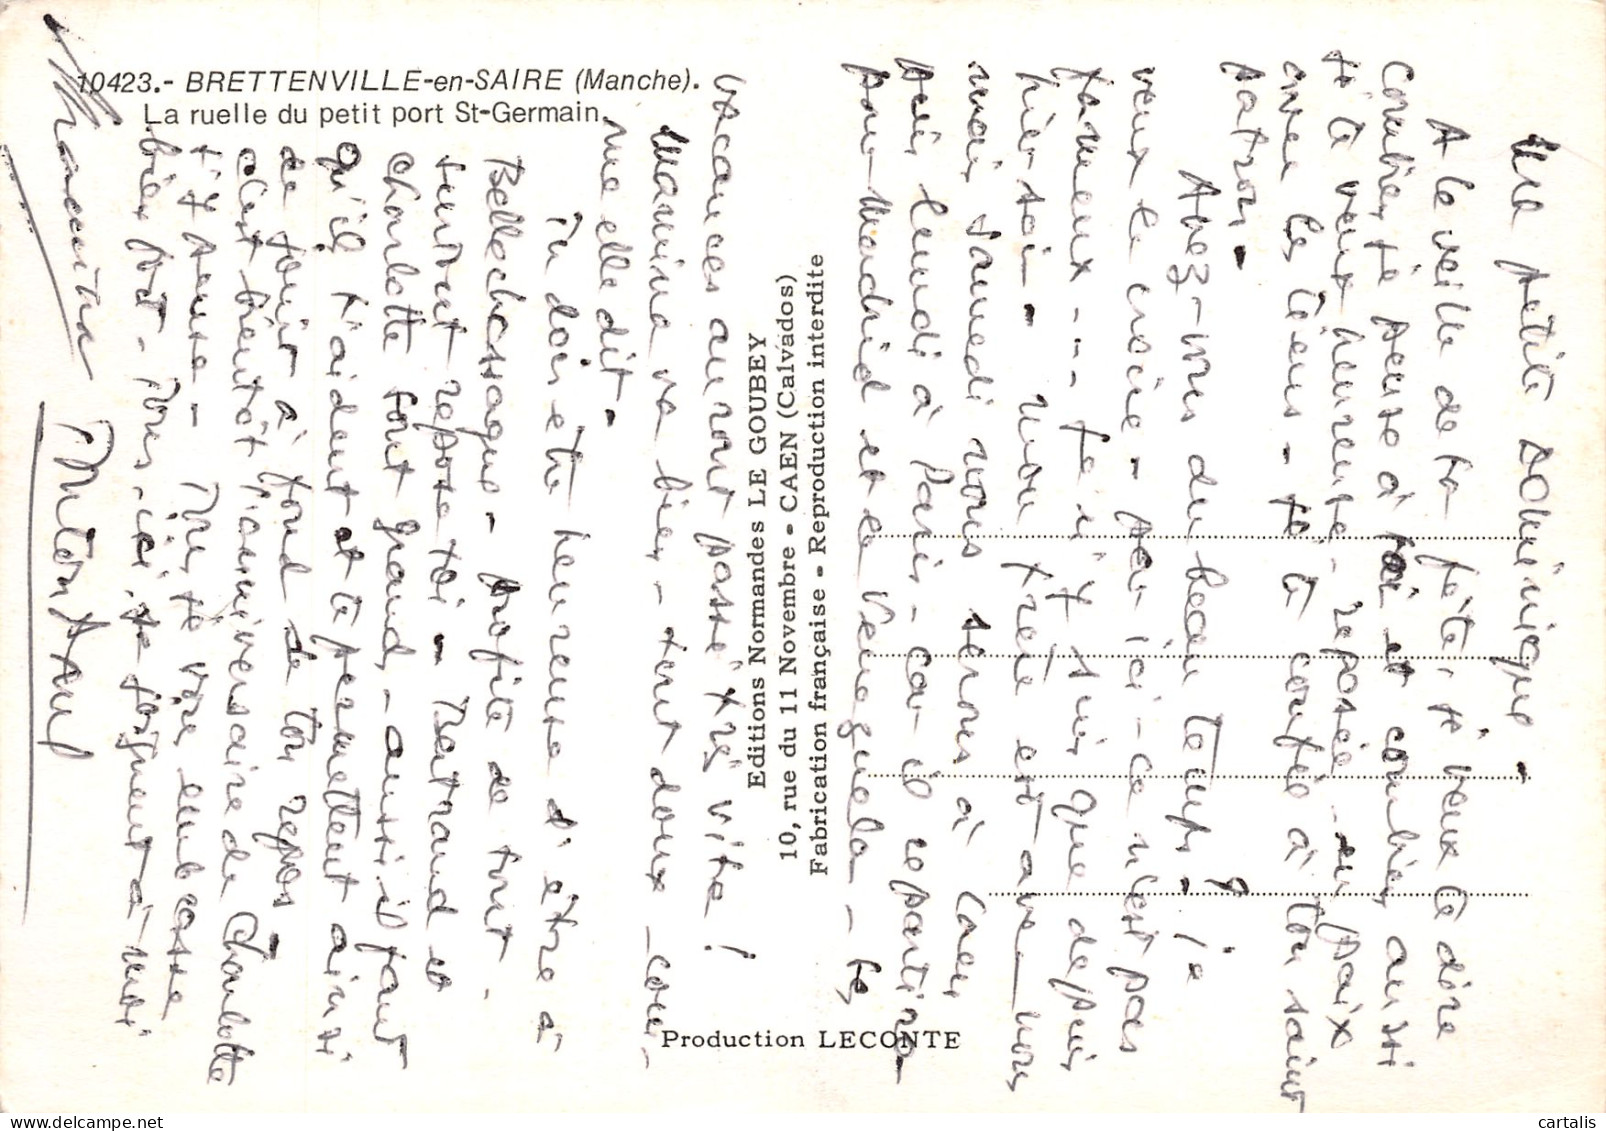 10423.- BRETTENVILLE-en-SAIRE (Manche).
La ruelle du petit port St-Germain.
Editions Normandes LE GOUBEY
10, rue du 11 Novembre - CAEN (Calvados)
Fabrication française - Reproduction interdite
Production LECONTE
Ma petite Dominique -
A la veille de ta fête, je veux te dire
combien je pense à toi et combien aussi
je te veux heureuse, reposée, en paix
avec les tiens - je te confie à ton saint
patron -
Avez-vous du beau temps ? je
veux le croire - par ici - ce n'est pas
fameux -- je n'y suis que depuis
hier soir - mon frère est avec nous
mais samedi nous serons à Caen
puis lundi à Paris - car il repartira
pour Madrid et le Venezuela - les
vacances auront passé très vite !
Mamina va bien - tout doux - comme
elle dit -
Tu dois être heureuse d'être à
Bellechassagne - profite de tout.
surtout repose toi - Bertrand et
Charlotte sont grands - aussi il faut
qu'ils t'aident et te permettent ainsi
de jouir à fond de ton repos
c'est bientôt l'anniversaire de Charlotte
j'y pense - Moi, je vous embrasse
bien fort - Tous ici se joignent à moi
Mitou